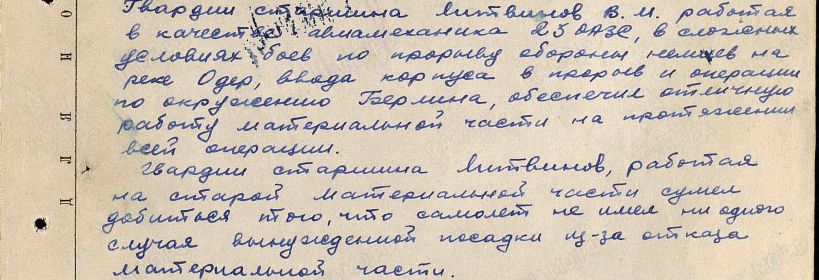 Гвардии старшина Литвинов В.М. работая
в качестве авиамеханика 25 ОАЭС, в сложных
условиях боев по прорыву обороны немцев на
реке Одер, ввода корпуса в прорыв и операции
по окружению Берлина, обеспечил отличную
работу материальной части на протяжении
всей операции.
Гвардии старшина Литвинов, работая
на старой материальной части сумел
добиться того, что самолет не имел ни одного
случая вынужденной посадки из-за отказа
материальной части.